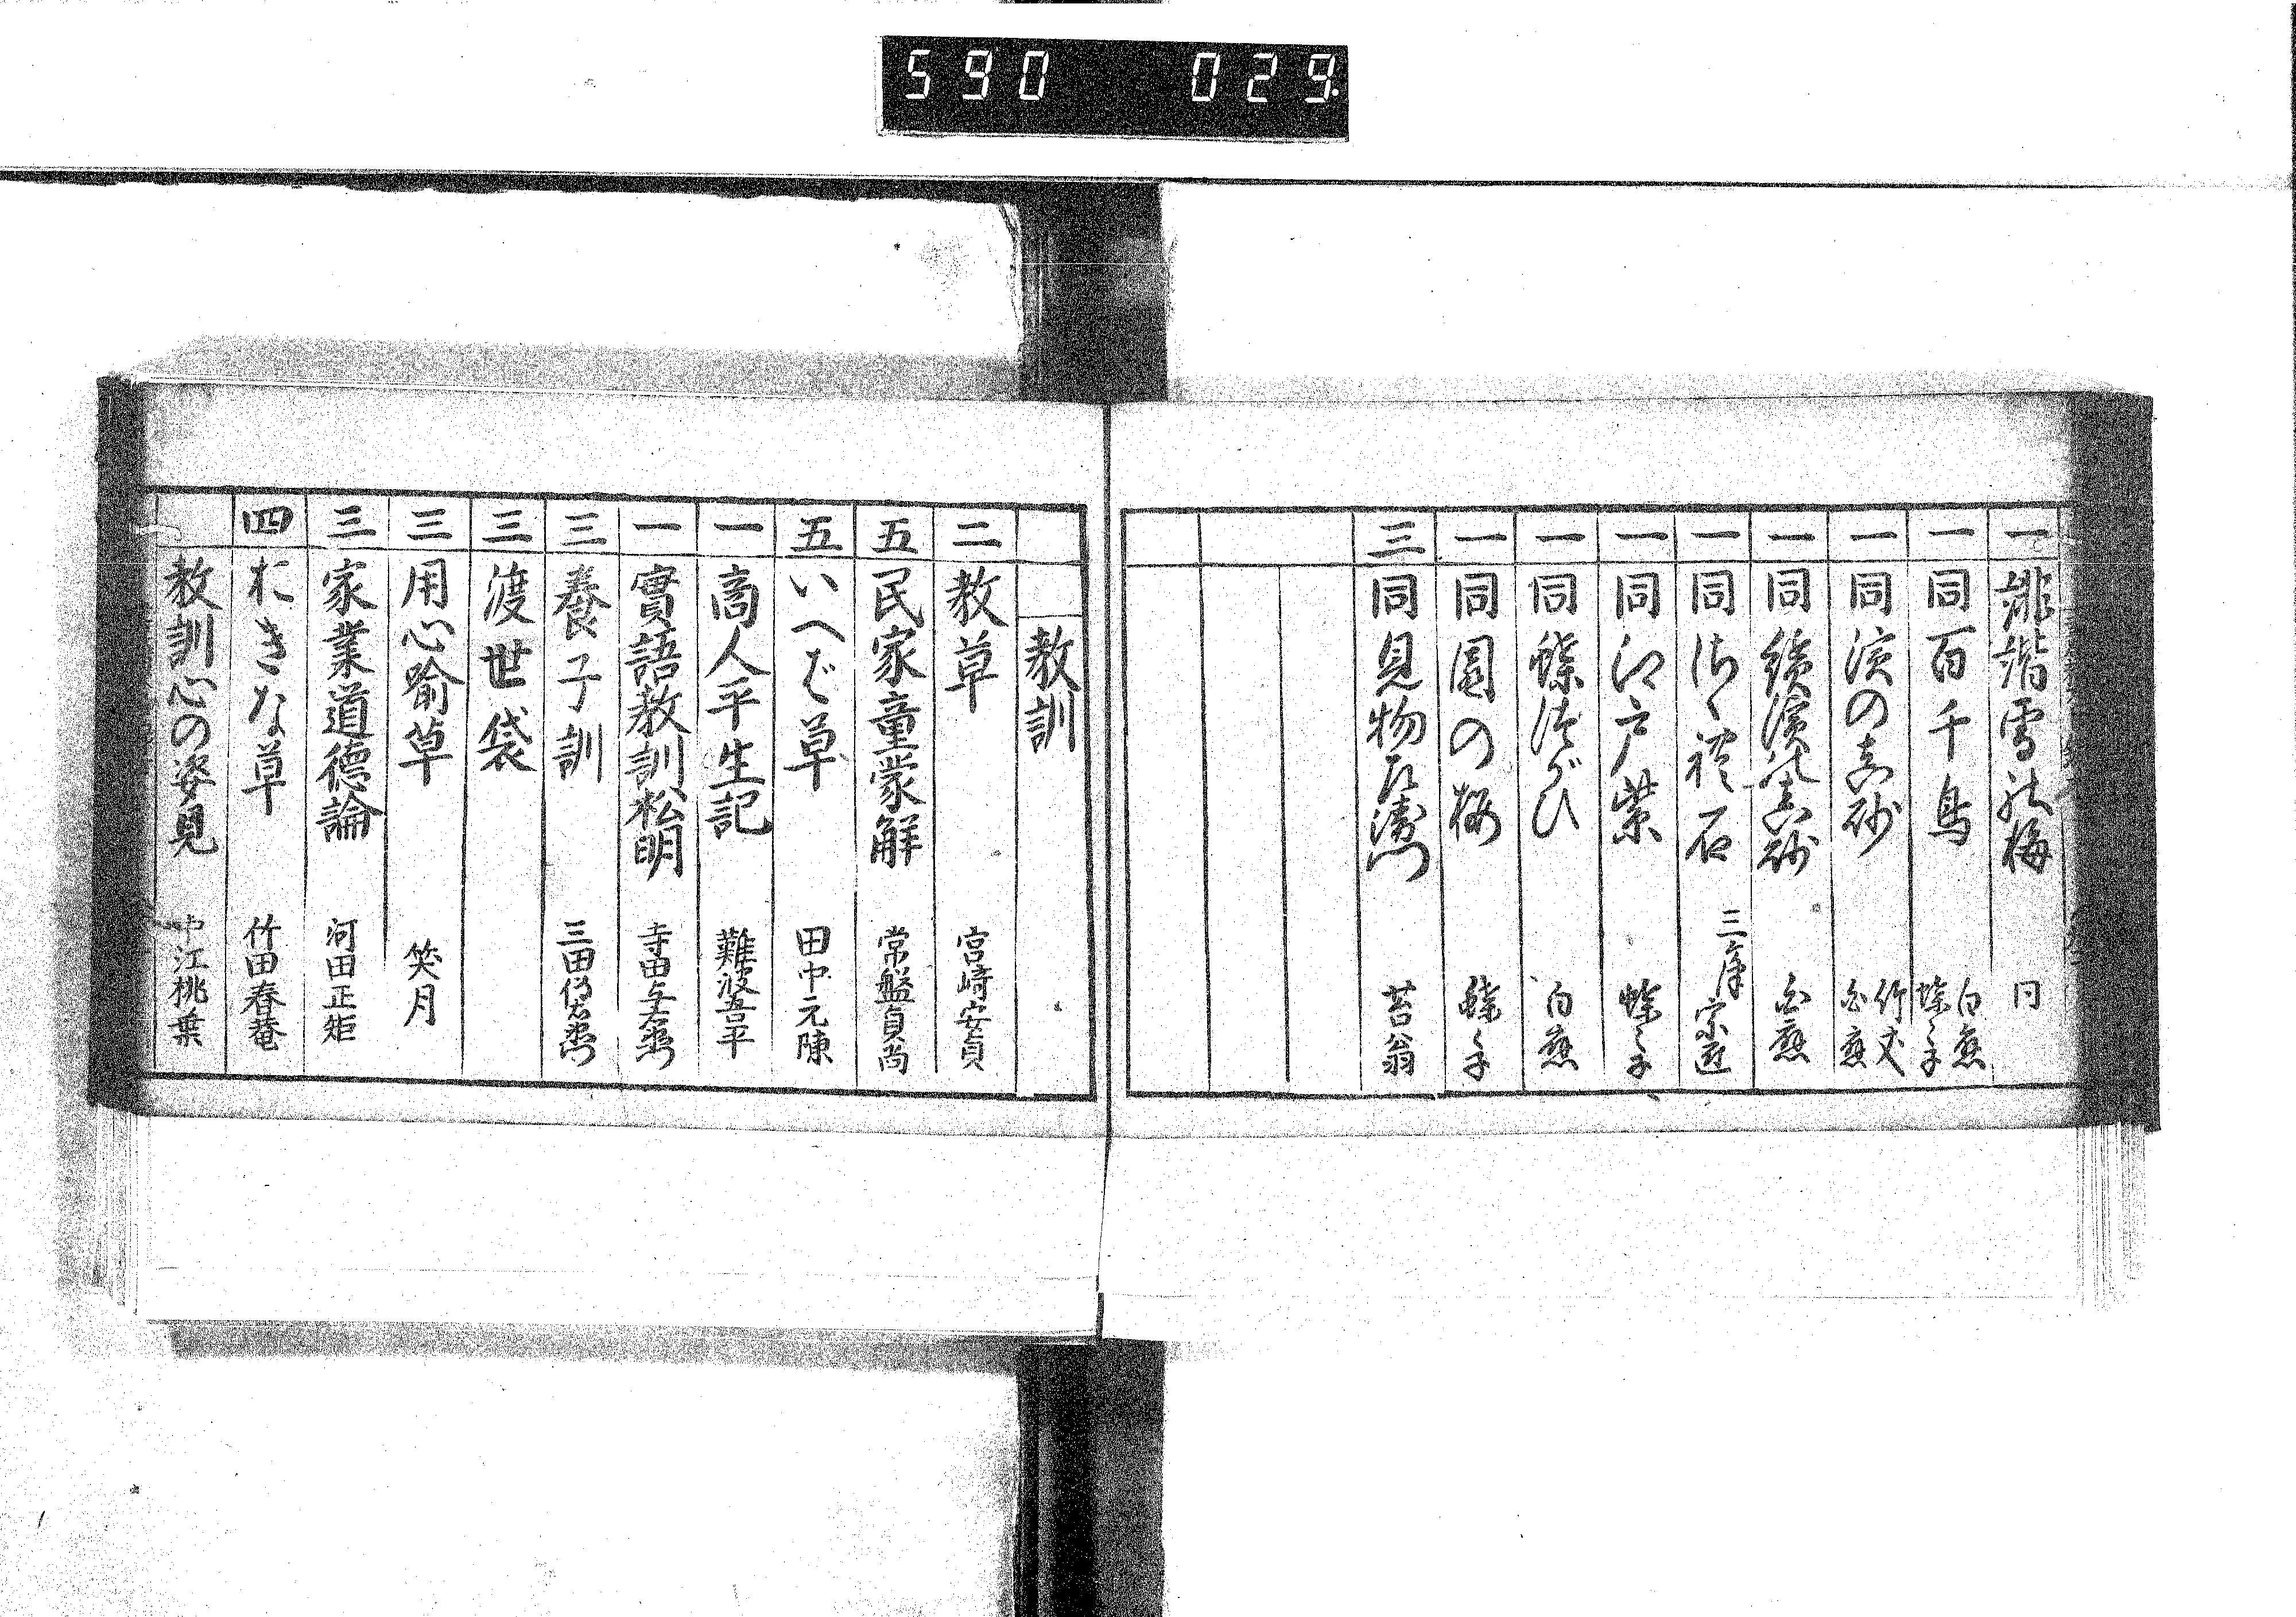 590 029
一 誹諧雪の梅 同
一 同百千鳥 白兎 蝶々子
一 同濱の真砂 竹丈
一 同續濱の真砂
一 同さゝれ石 三津 宗匠
一 同江戸紫 蝶々子
一 同蝶つがひ
一 同園の梅 蝶々子
三 同見物左衛門 苔翁
教訓
二 教草 宮崎安貞
五 民家童蒙解 常盤貞尚
五 いへで草 田中元陳
一 商人平生記 難波吾平
一 實語教訓松明 寺田与右衛門
三 養子訓
三 渡世袋
三 用心喩草 笑月
三 家業道德論 河田正矩
四 おきな草 竹田春菴
教訓心の姿見 中江桃葉